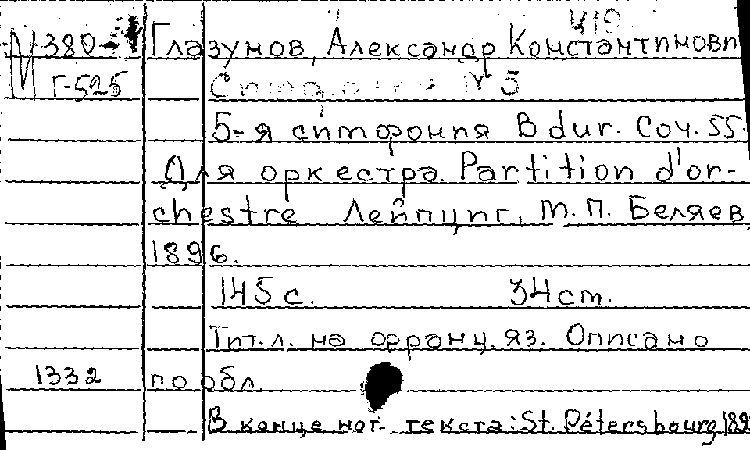 419
М 380- Глазунов, Александр Константинови
Г-525 Симфония № 5
5-я симфония B dur. Соч. 55.
Для оркестра. Partition d'or-
chestre Лейпциг, М. П. Беляев,
1896.
145 с. 34 cm.
Тит. л. на франц. яз. Описано
1332 по обл.
В конце нот. текста: St. Pétersbourg 189